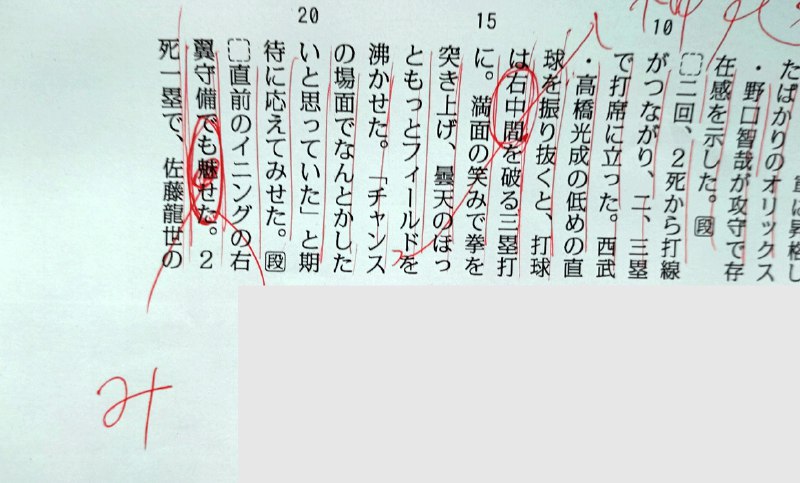 に昇格し
たばかりのオリックス
・野口智哉が攻守で存
在感を示した。段
10
二回、2死から打線
がつながり、二、三塁
で打席に立った。西武
・高橋光成の低めの直
球を振り抜くと、打球
15
は右中間を破る三塁打
に。満面の笑みで拳を
突き上げ、曇天のほっ
ともっとフィールドを
沸かせた。「チャンス
20
の場面でなんとかした
いと思っていた」と期
待に応えてみせた。段
直前のイニングの右
翼守備でも魅せた。2
死一塁で、佐藤龍世の
み